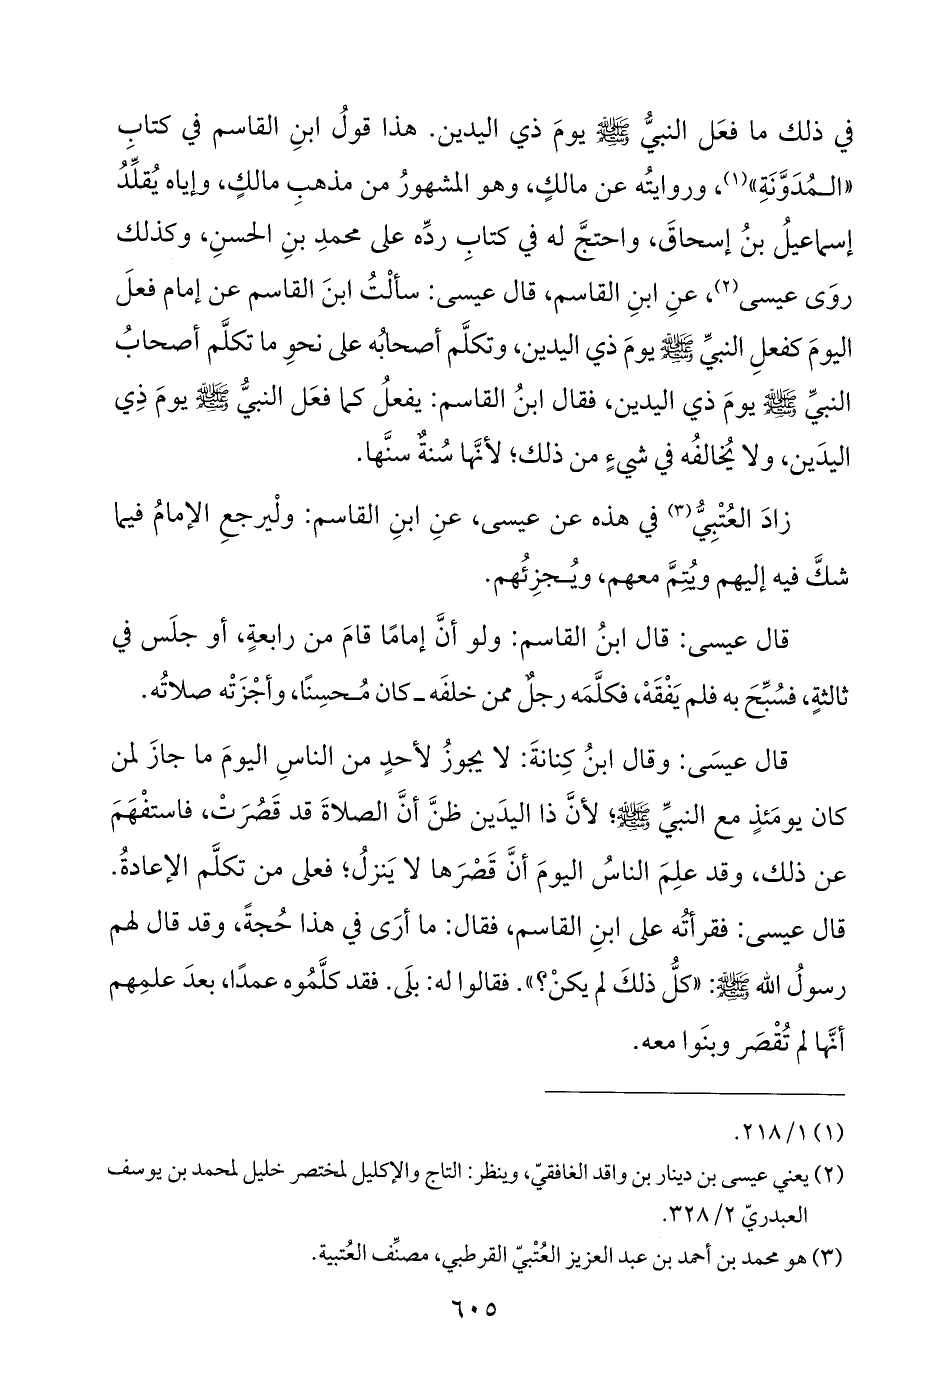 في ذلك ما فعَل النبيُّ ﷺ يومَ ذي اليدين. هذا قولُ ابنِ القاسم في كتابِ
«الـمُدَوَّنَةِ»(١)، وروايتُه عن مالكٍ، وهو المشهورُ من مذهبِ مالكٍ، وإياه يُقلِّدُ
إسماعيلُ بنُ إسحاقَ، واحتجَّ له في كتابِ ردِّه على محمدِ بنِ الحسنِ، وكذلك
روَى عيسى(٢)، عنِ ابنِ القاسم، قال عيسى: سألْتُ ابنَ القاسم عن إمام فعلَ
اليومَ كفعلِ النبيِّ ﷺ يومَ ذي اليدين، وتكلَّم أصحابُه على نحوِ ما تكلَّم أصحابُ
النبيِّ ﷺ يومَ ذي اليدين، فقال ابنُ القاسم: يفعلُ كما فعَل النبيُّ ﷺ يومَ ذِي
اليدَين، ولا يُخالفُه في شيءٍ من ذلك؛ لأنَّها سُنةٌ سنَّها.
زادَ العُتْبِيُّ(٣) في هذه عن عيسى، عنِ ابنِ القاسم: ولْيرجعِ الإمامُ فيما
شكَّ فيه إليهم ويُتِمَّ معهم، ويُـجزِئُهم.
قال عيسى: قال ابنُ القاسم: ولو أنَّ إمامًا قامَ من رابعةٍ، أو جلَس في
ثالثةٍ، فسُبِّحَ به فلم يَفْقَهْ، فكلَّمَه رجلٌ ممن خلفَه ـ كان مُـحسِنًا، وأجْزَتْه صلاتُه.
قال عيسَى: وقال ابنُ كِنانةَ: لا يجوزُ لأحدٍ من الناسِ اليومَ ما جازَ لمن
كان يومَئذٍ مع النبيِّ ﷺ؛ لأنَّ ذا اليدَين ظنَّ أنَّ الصلاةَ قد قَصُرَتْ، فاستفْهَمَ
عن ذلك، وقد علِمَ الناسُ اليومَ أنَّ قَصْرَها لا يَنزلُ؛ فعلى من تكلَّم الإعادةُ.
قال عيسى: فقرأتُه على ابنِ القاسم، فقال: ما أرَى في هذا حُجةً، وقد قال لهم
رسولُ الله ﷺ: «كلُّ ذلكَ لم يكنْ؟». فقالوا له: بلَى. فقد كلَّمُوه عمدًا، بعدَ علمِهم
أنَّها لم تُقْصَر وبنَوا معه.
(١) ١/ ٢١٨.
(٢) يعني عيسى بن دينار بن واقد الغافقيّ، وينظر: التاج والإكليل لمختصر خليل لمحمد بن يوسف
العبدريّ ٢/ ٣٢٨.
(٣) هو محمد بن أحمد بن عبد العزيز العُتْبيّ القرطبي، مصنِّف العُتبية.
٦٠٥